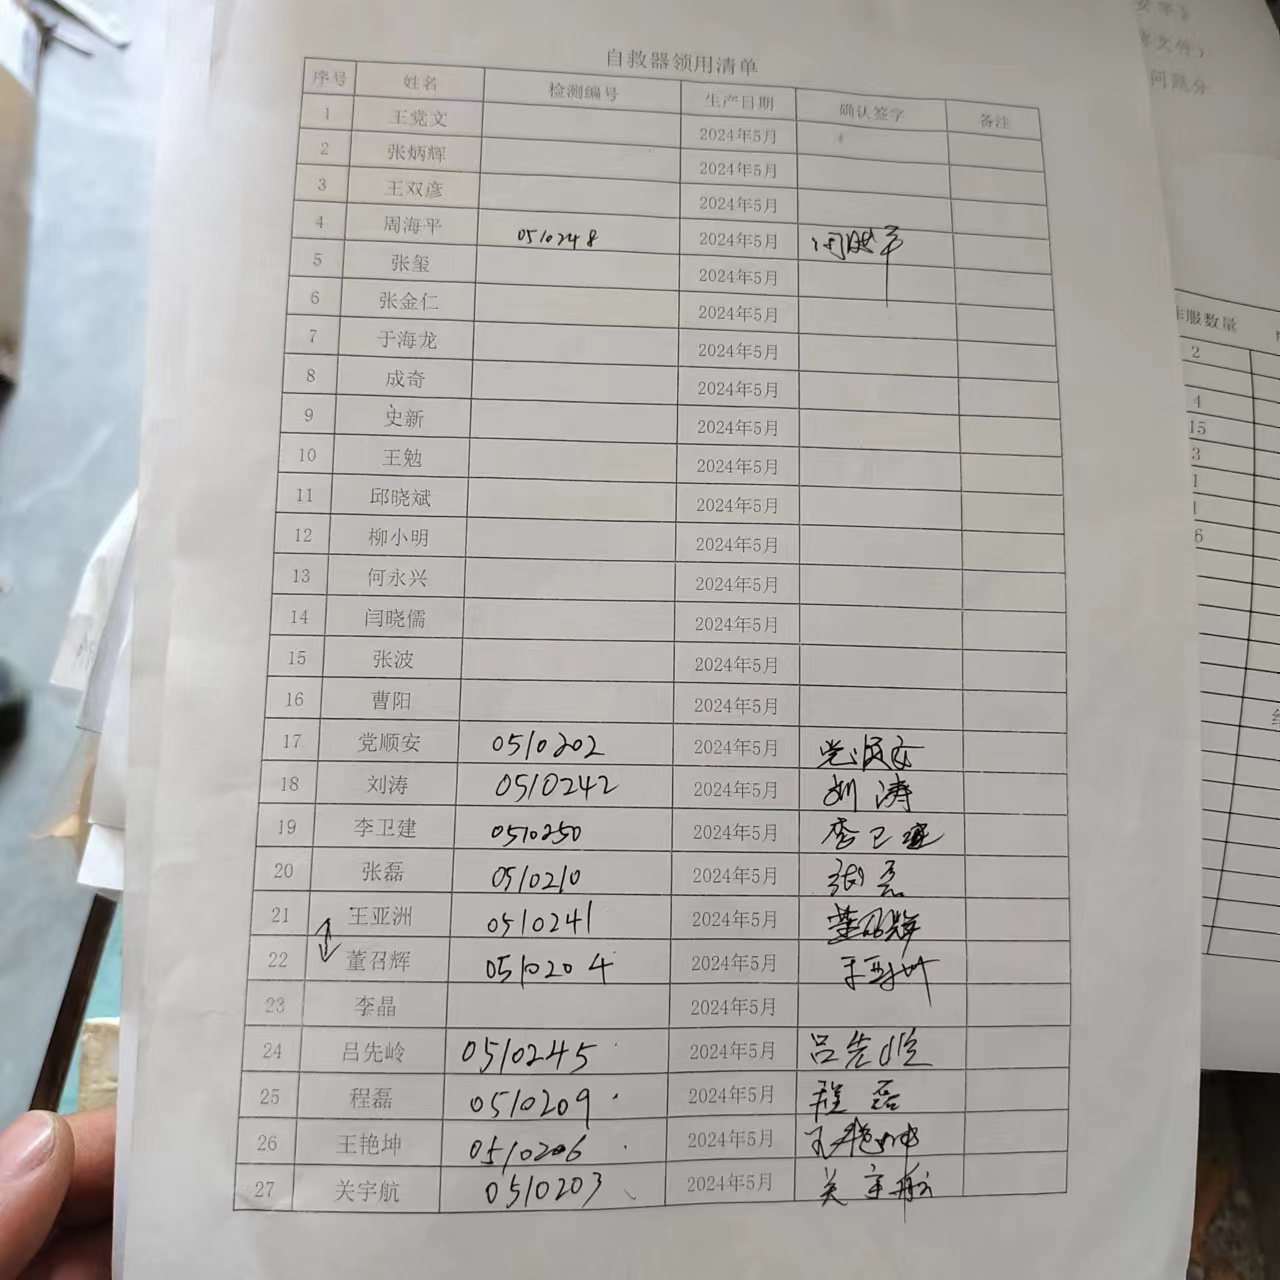 自救器领用清单
序号 姓名 检测编号 生产日期 确认签字 备注
1 王党文 2024年5月
2 张炳辉 2024年5月
3 王双彦 2024年5月
4 周海平 0510248 2024年5月 周海平
5 张玺 2024年5月
6 张金仁 2024年5月
7 于海龙 2024年5月
8 成奇 2024年5月
9 史新 2024年5月
10 王勉 2024年5月
11 邱晓斌 2024年5月
12 柳小明 2024年5月
13 何永兴 2024年5月
14 闫晓儒 2024年5月
15 张波 2024年5月
16 曹阳 2024年5月
17 党顺安 0510202 2024年5月 党顺安
18 刘涛 0510242 2024年5月 刘涛
19 李卫建 0510250 2024年5月 李卫建
20 张磊 0510210 2024年5月 张磊
21 王亚洲 0510241 2024年5月 董召辉
22 董召辉 0510204 2024年5月 王亚州
23 李晶 2024年5月
24 吕先岭 0510245 2024年5月 吕先岭
25 程磊 0510209 2024年5月 程磊
26 王艳坤 0510206 2024年5月 王艳坤
27 关宇航 0510203 2024年5月 关宇航
文件）
问题分
服数量
2
4
15
3
1
1
6